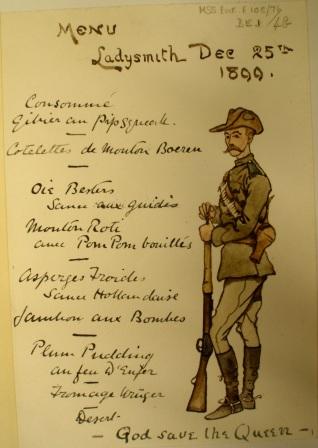 MSS Eur. F 108/76
48
MENU
Ladysmith Dec 25TH
1899.
Consommé
Gibier au Pipsqueak.
Cotelettes de Mouton Boeren
Oie Besters
Sauce aux guides
Mouton Roti
avec Pom Pom bouillés
Asperges Froides
Sauce Hollandaise
Jambon aux Bombes
Plum Pudding
au feu D'Enfer
Fromage Krüger
Desert
- God save the Queen -